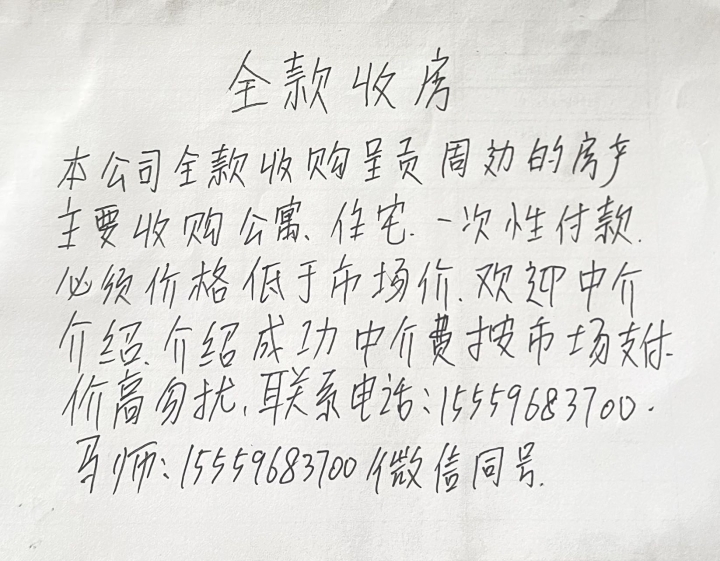 全款收房
本公司全款收购呈贡周边的房产
主要收购公寓、住宅.一次性付款.
必须价格低于市场价.欢迎中介
介绍.介绍成功中介费按市场支付.
价高勿扰,联系电话:15559683700.
马师:15559683700微信同号.